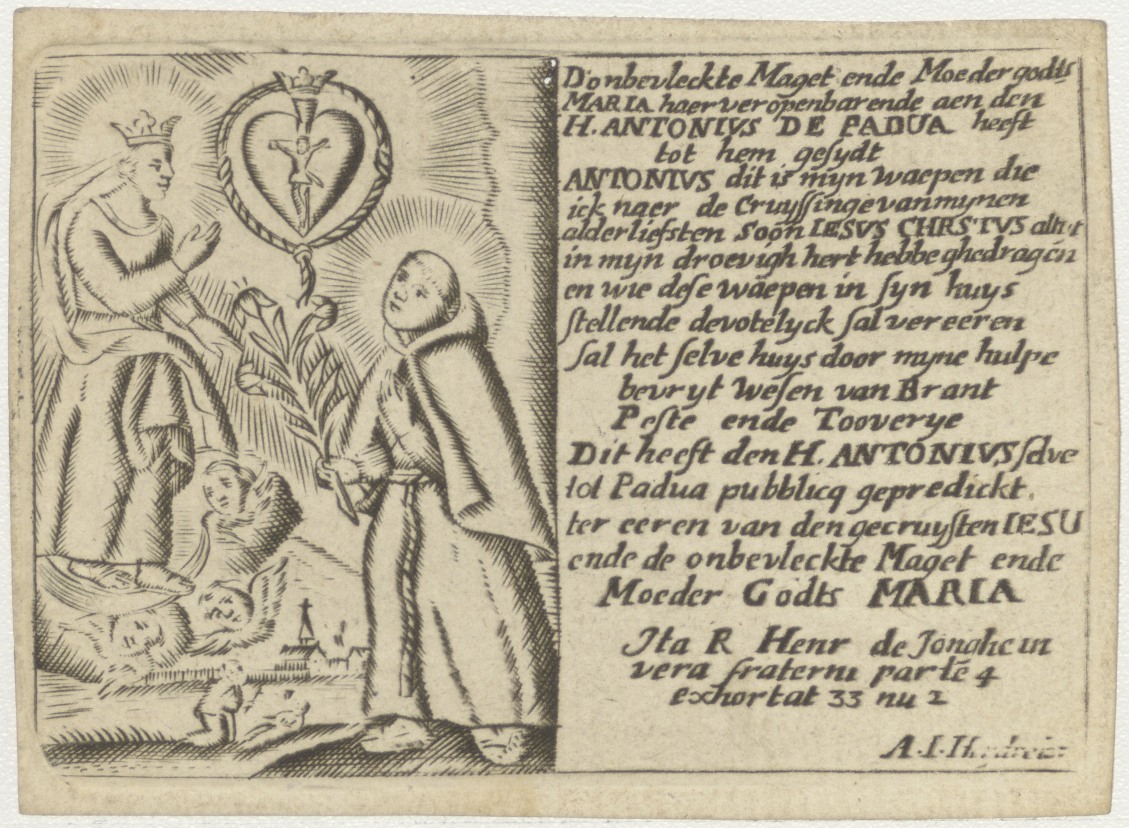 D'onbevleckte Maget ende Moeder godts
MARIA haer veropenbarende aen den
H. ANTONIVS DE PADUA heeft
tot hem gesydt
ANTONIVS dit is myn Waepen die
ick naer de Cruyssinge van mynen
alderliefsten Soon IESVS CHRSTVS
in myn droevigh hert hebbe ghedragen
en wie dese wäepen in syn huys
stellende devotelyck sal vereeren
sal het selve huys door myne hulpe
bevryt Wesen van Brant
Peste ende Tooverye
Dit heeft den H. ANTONIVS selve
tot Padua pubblicq gepredickt.
ter eeren van den gecruysten IESU
ende de onbevleckte Maget ende
Moeder Godts MARIA
Ita R Henr de Jonghe in
vera fraterni parte 4
exhortat 33 nu 2
A.I.